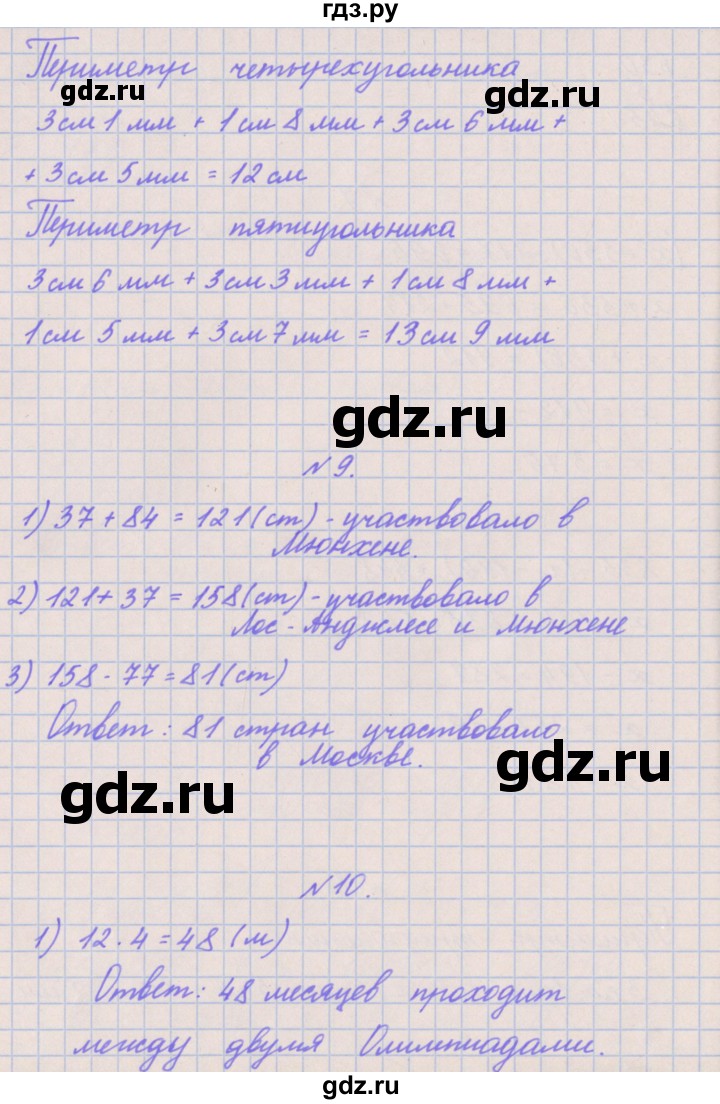 гдз.ру
Периметр четырехугольника
gdz.ru
gdz.ru
3 см 1 мм + 1 см 8 мм + 3 см 6 мм +
+ 3 см 5 мм = 12 см
Периметр пятиугольника
3 см 6 мм + 3 см 3 мм + 1 см 8 мм +
1 см 5 мм + 3 см 7 мм = 13 см 9 мм
gdz.ru
№ 9.
1) 37 + 84 = 121 (ст) - участвовало в
Мюнхене.
2) 121 + 37 = 158 (ст) - участвовало в
Лос - Анджелесе и Мюнхене
3) 158 - 77 = 81 (ст)
Ответ: 81 стран участвовало
в Москве.
gdz.ru
gdz.ru
№ 10.
1) 12 · 4 = 48 (м)
Ответ: 48 месяцев проходит
между двумя Олимпиадами.
gdz.ru